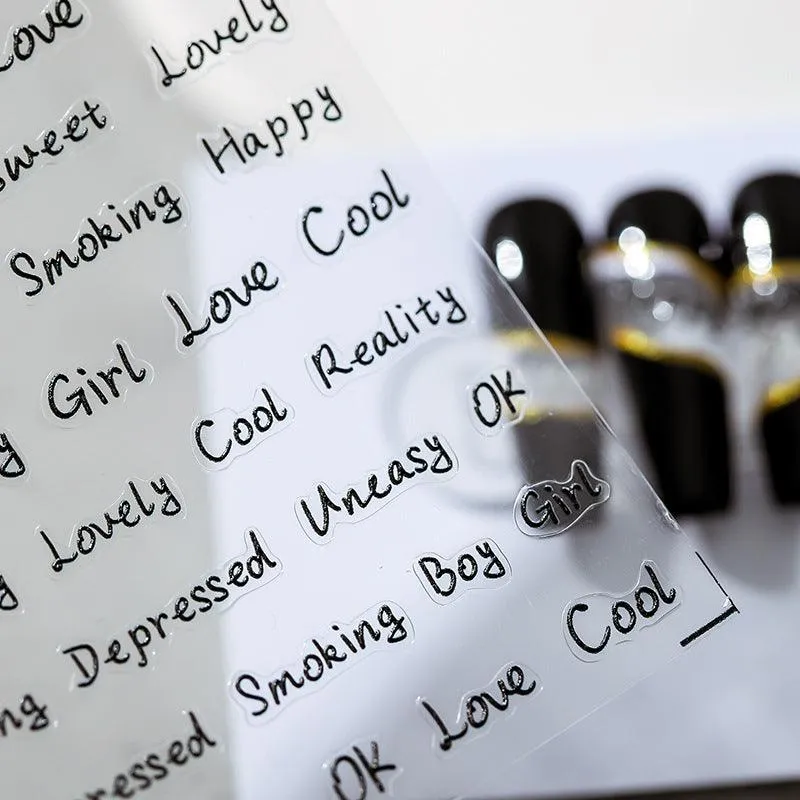 Love Lovely
Sweet Happy
Smoking Cool
Girl Love Reality
Lovely Cool OK
Depressed Uneasy Girl
Smoking Boy Cool
OK Love